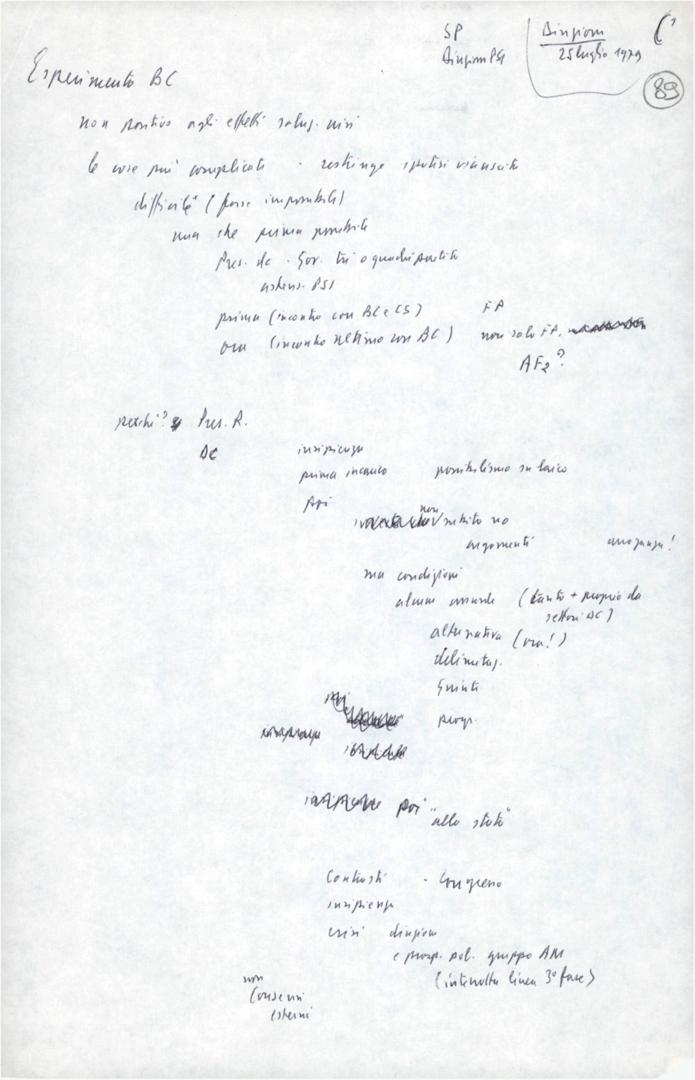 SP
Direzione PCI
Direzione
25 luglio 1979
89
Esperimento BC
non positivo agli effetti soluz. crisi
le cose più complicate - restringe ipotesi riuscita
difficile (forse impossibile)
ma che prima possibile
Pres. dc - Gov. tri o quadripartito
astens. PSI
prima (incontro con BC e CS) FA
ora (incontro ultimo con BC) non solo FA,
AF2?
perché? Pres. R.
DC
insipienza
prima incontro possibilismo su laico
poi
non subito no
argomenti arroganza!
ma condizioni
alcune assurde (tanto + proprio da
settori DC)
alternativa (ora!)
delimitaz.
Giunte
progr.
poi "allo stato"
Contrasti - Congresso
insipienza
crisi direzione
e prosp. pol. gruppo AM
(interrotta linea 3° fase)
non
Consensi
esterni